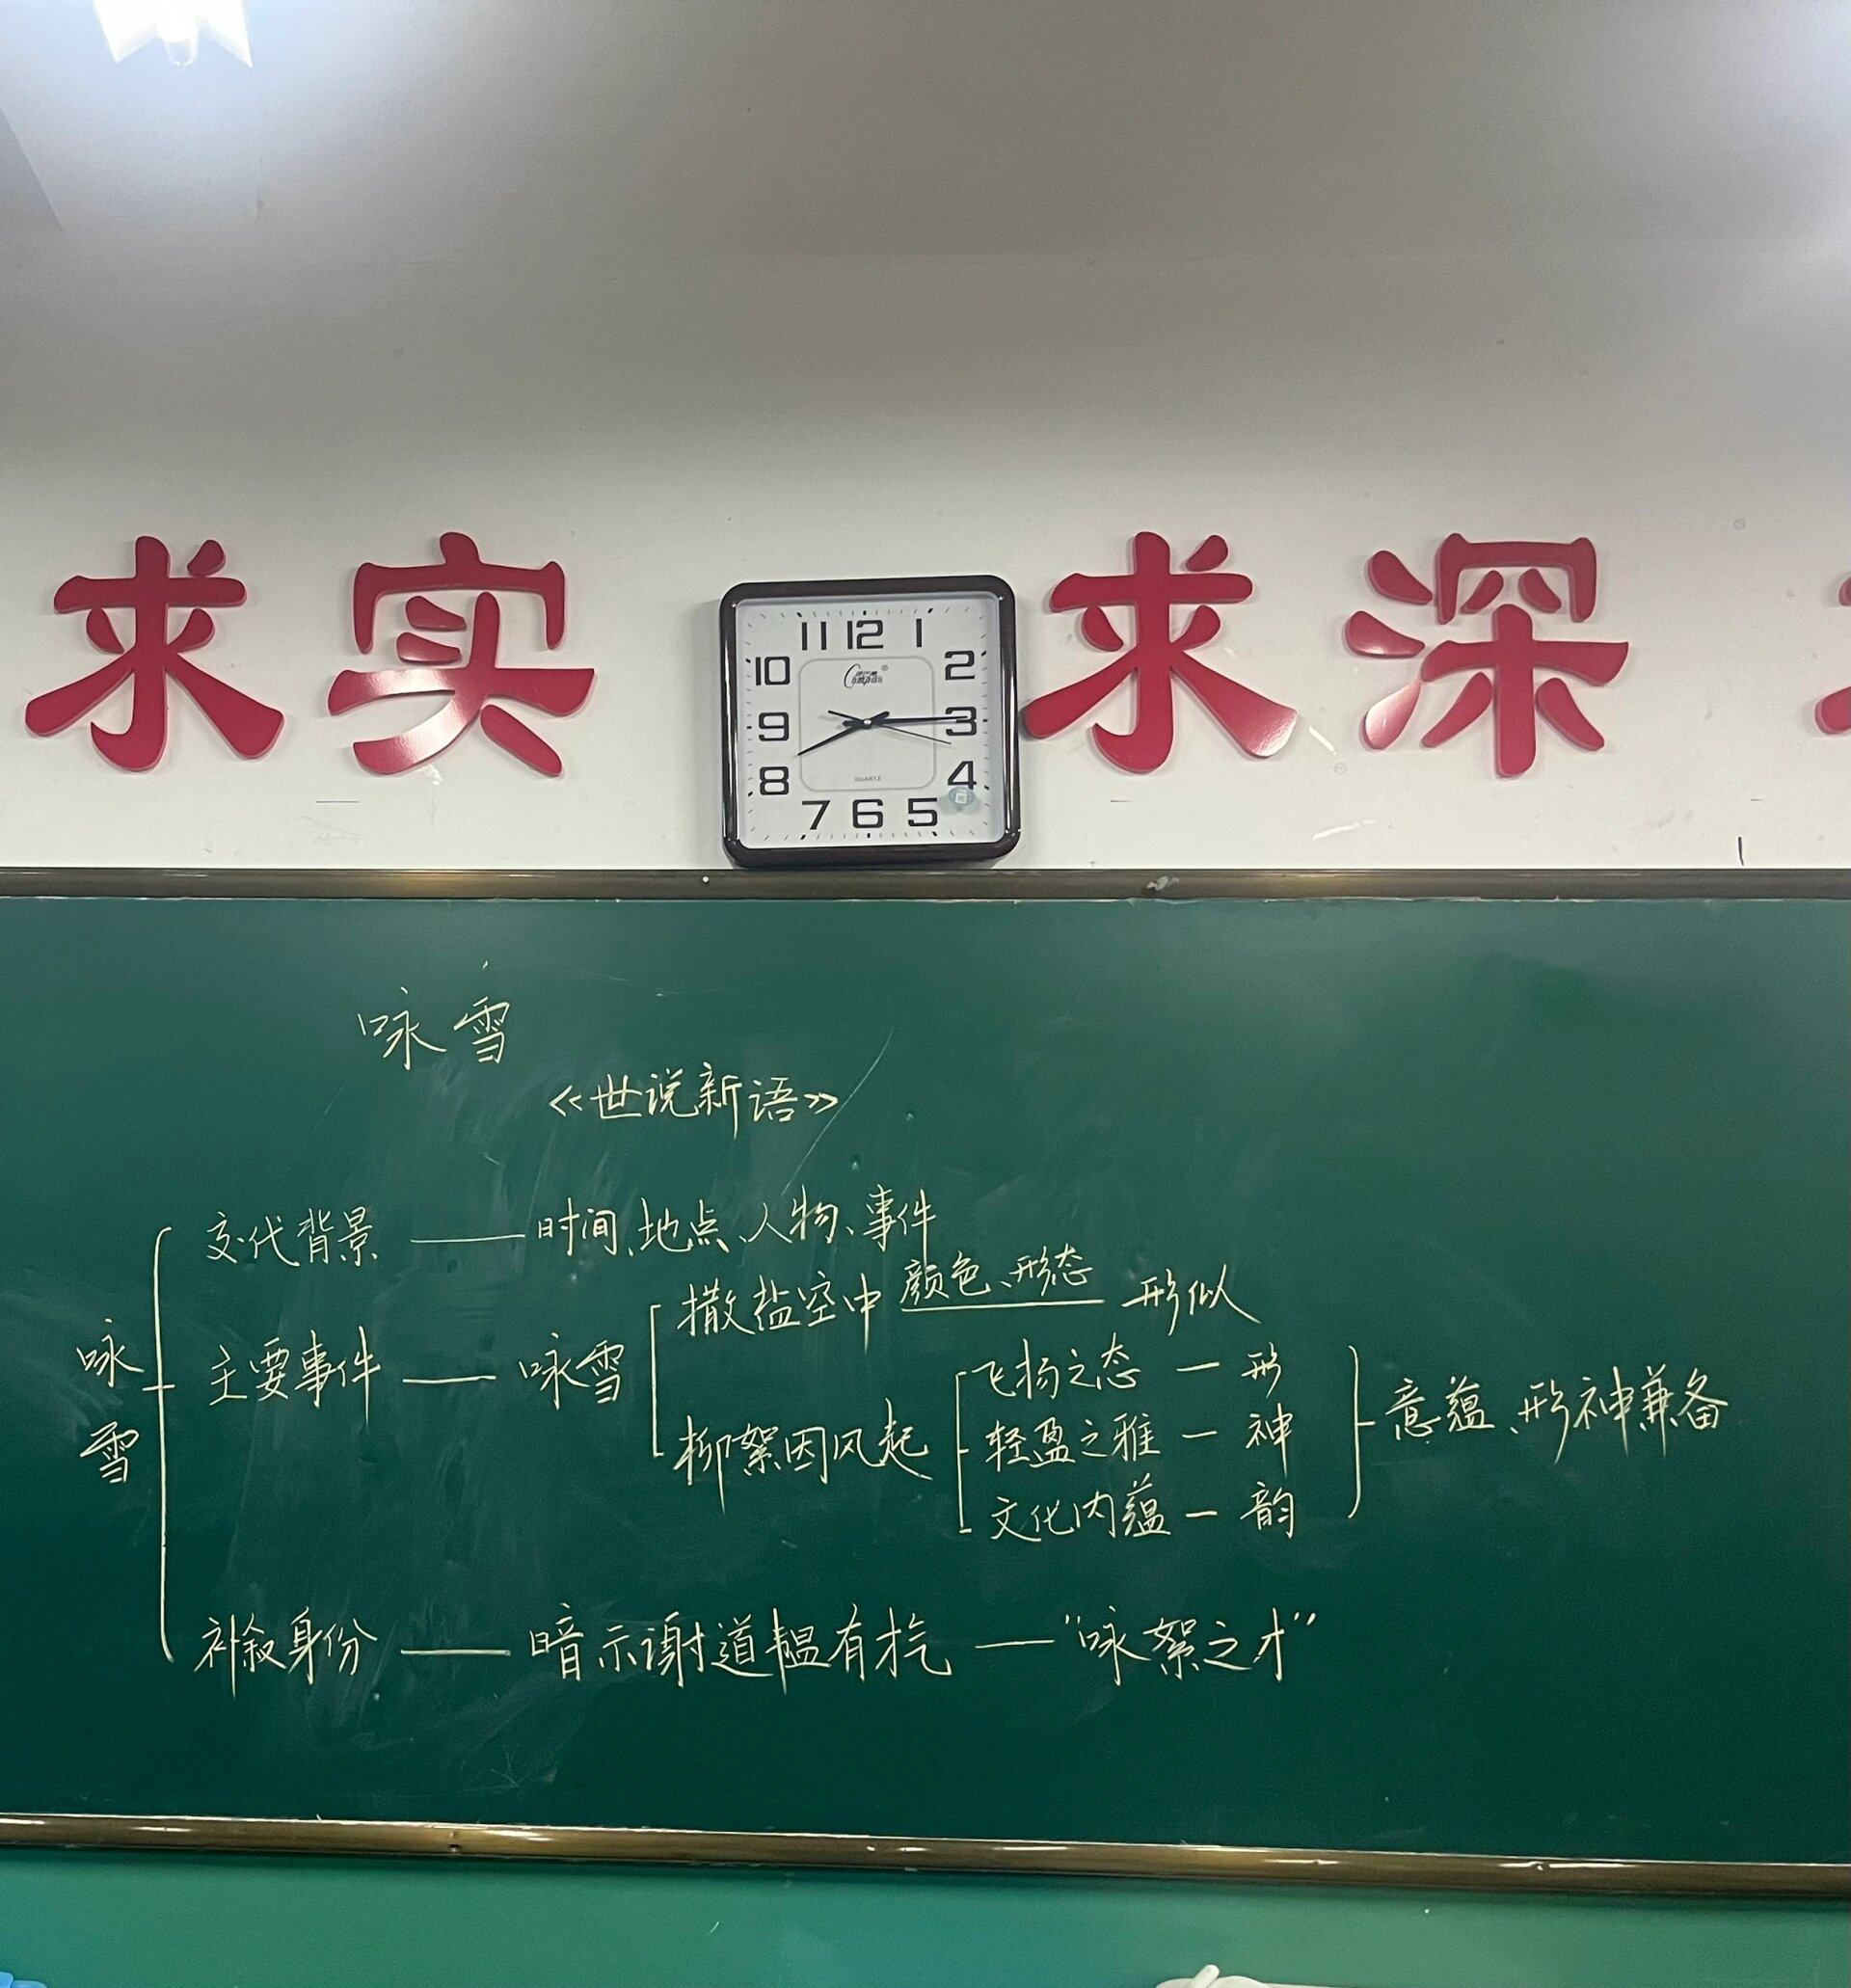 求实 求深
11 12 1
10 2
Compas
9 3
8 QUARTZ 4
7 6 5
咏雪
《世说新语》
咏雪
交代背景——时间、地点、人物、事件
主要事件——咏雪
撒盐空中 颜色、形态 形似
柳絮因风起
飞扬之态—形
轻盈之雅—神
文化内蕴—韵
意蕴、形神兼备
补叙身份——暗示谢道韫有才气——"咏絮之才"